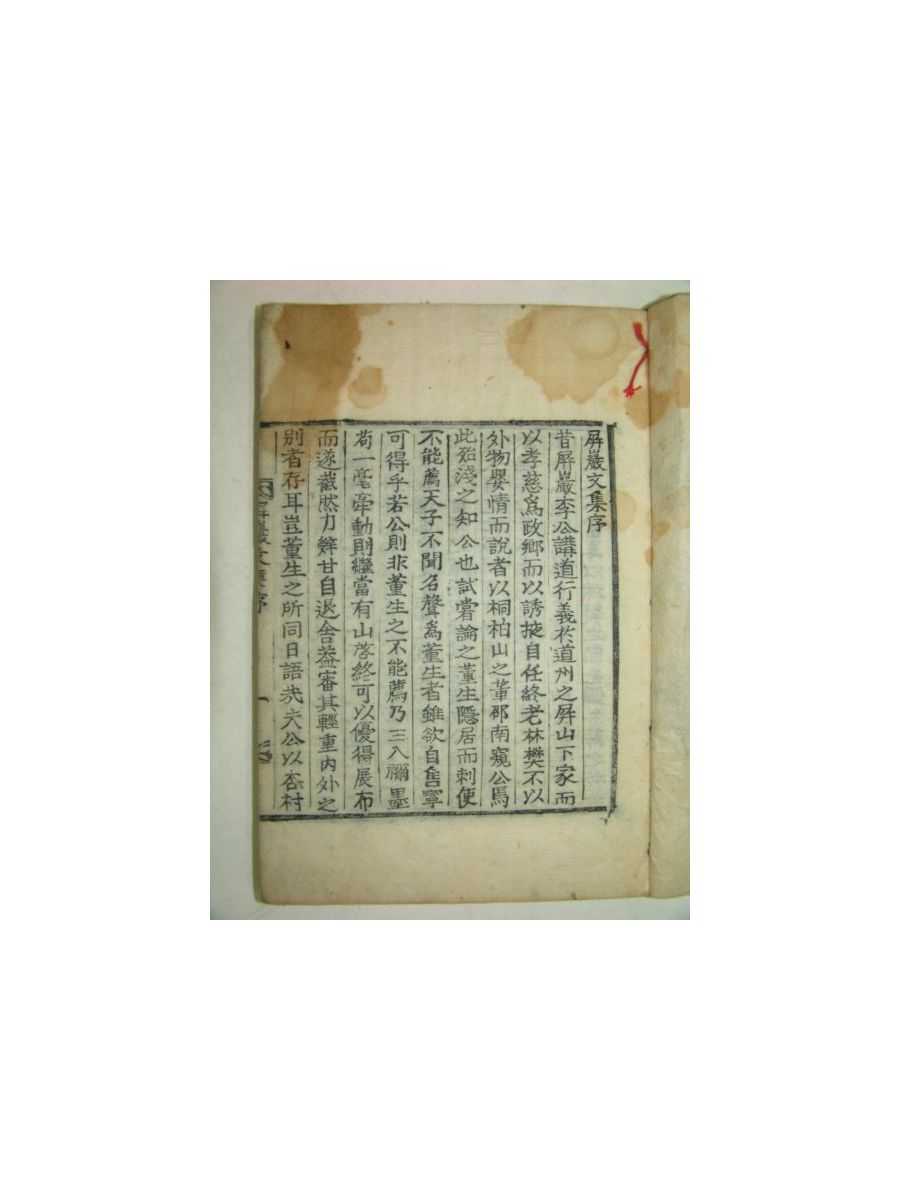 屛巖文集序
昔屛巖李公講道行義於道州之屛山下家而
以孝慈爲政鄕而以誘掖自任終老林樊不以
外物嬰情而說者以桐柏山之董邵南窺公焉
此殆淺之知公也試嘗論之董生隱居而刺使
不能薦天子不聞名聲爲董生者雖欲自售寧
可得乎若公則非董生之不能薦乃三入禰墨
苟一毫牽動則繼當有山啓終可以優得展布
而遂截然力辤甘自退舍葢審其輕重內外之
別者存耳豈董生之所同日語哉夫公以杏村
屛巖文集序
一